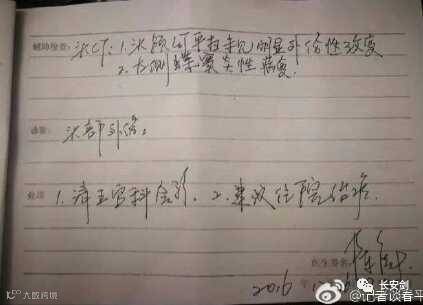 辅助检查: 头CT: 1.头颅CT平扫未见明显外伤性改变
2. 右侧 窦炎性病变.
诊断: 头部外伤.
处理: 1. 请五官科会诊. 2. 建议住院治疗.
医生签名:
2016
大数跨境
长安剑
@记者谈春平